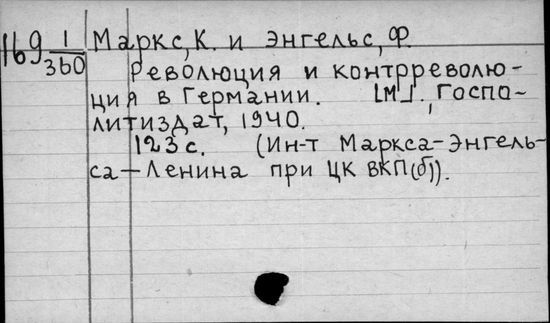 169 1/360 Маркс, К. и Энгельс, Ф.
Революция и контрреволю-
ция в Германии. [М.], Госпо-
литиздат, 1940.
123 с. (Ин-т Маркса-Энгель-
са-Ленина при ЦК ВКП(б)).